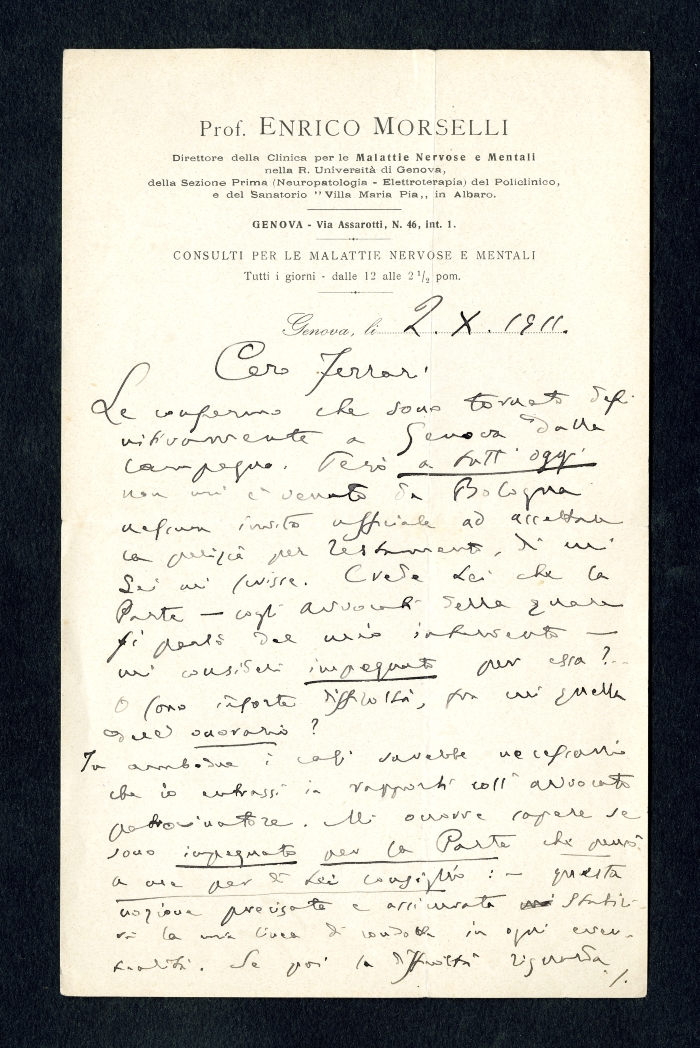 Prof. ENRICO MORSELLI
Direttore della Clinica per le Malattie Nervose e Mentali
nella R. Università di Genova,
della Sezione Prima (Neuropatologia - Elettroterapia) del Policlinico,
e del Sanatorio "Villa Maria Pia,, in Albaro.
GENOVA - Via Assarotti, N. 46, int. 1.
CONSULTI PER LE MALATTIE NERVOSE E MENTALI
Tutti i giorni - dalle 12 alle 2 1/2 pom.
Genova, li 2. X. 1911.
Caro Ferrari
Le confermo che sono tornato defi-
nitivamente a Genova dalla
campagna. Però a tutt'oggi
non mi è venuto da Bologna
nessun invito ufficiale ad accettare
la perizia per testamento, di cui
Lei mi scrisse. Crede Lei che la
Parte — cogli Avvocati della quale
si parlò del mio intervento —
mi consideri impegnato per essa?
O sono insorte difficoltà, fra cui quella
dell'onorario?
In ambedue i casi sarebbe necessario
che io entrassi in rapporti coll'avvocato
patrocinatore. Mi occorre sapere se
sono impegnato per la Parte che pensò
a me per di Lei consiglio: — questa
nozione precisante e assicurata stabili-
rà la mia linea di condotta in ogni even-
tualità. Se poi la difficoltà riguarda
./.